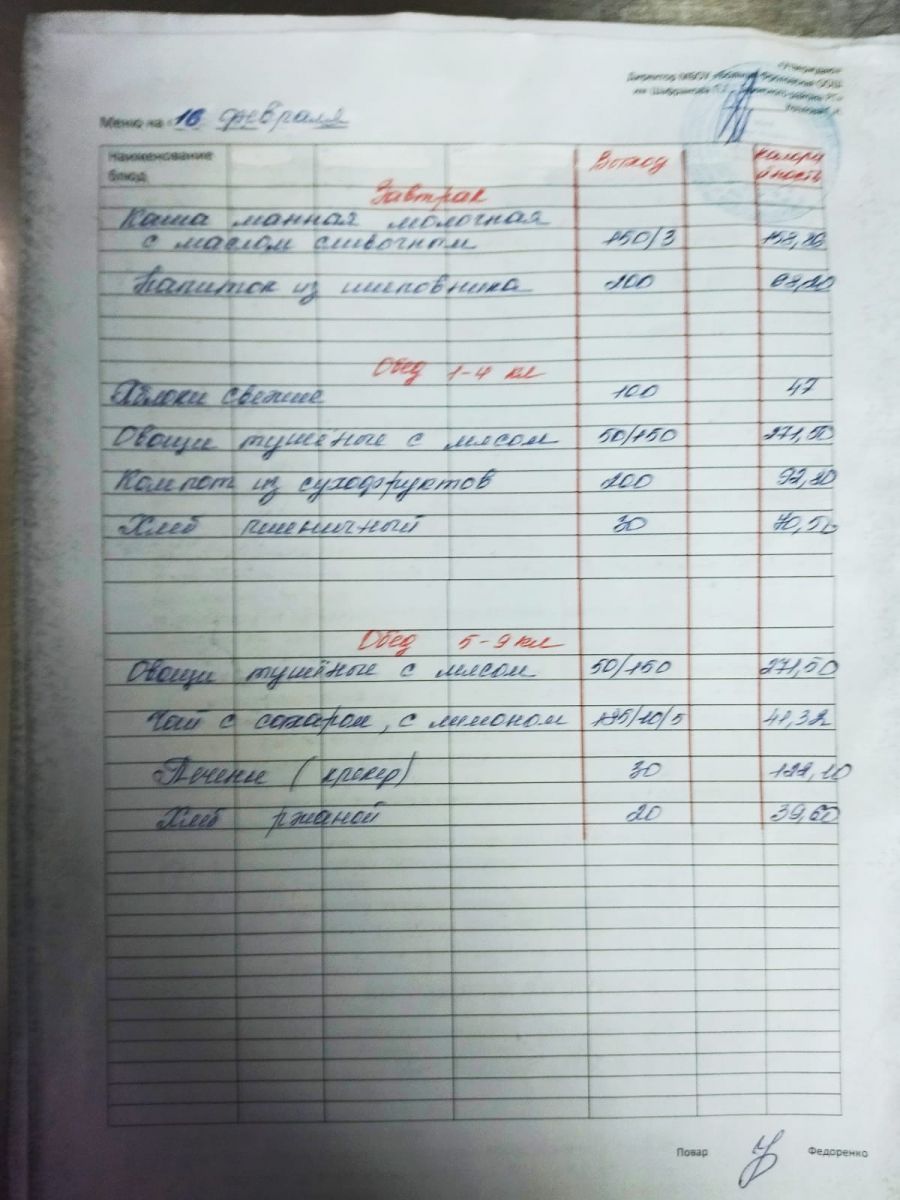 «Утверждаю»
Директор МБОУ
Меню на «16 февраля
Наименование блюд
Выход
Калорийность
Завтрак
Каша манная молочная
с маслом сливочным 150/3
Напиток из шиповника 200
Обед 1-4 кл
Яблоки свежие 100 47
Овощи тушёные с мясом 50/150 271,50
Компот из сухофруктов 200 92,20
Хлеб пшеничный 30 70,50
Обед 5-9 кл
Овощи тушёные с мясом 50/150 271,50
Чай с сахаром, с лимоном 185/10/5 41,32
Печенье (крекер) 30
Хлеб ржаной 20 39,60
Повар Федоренко